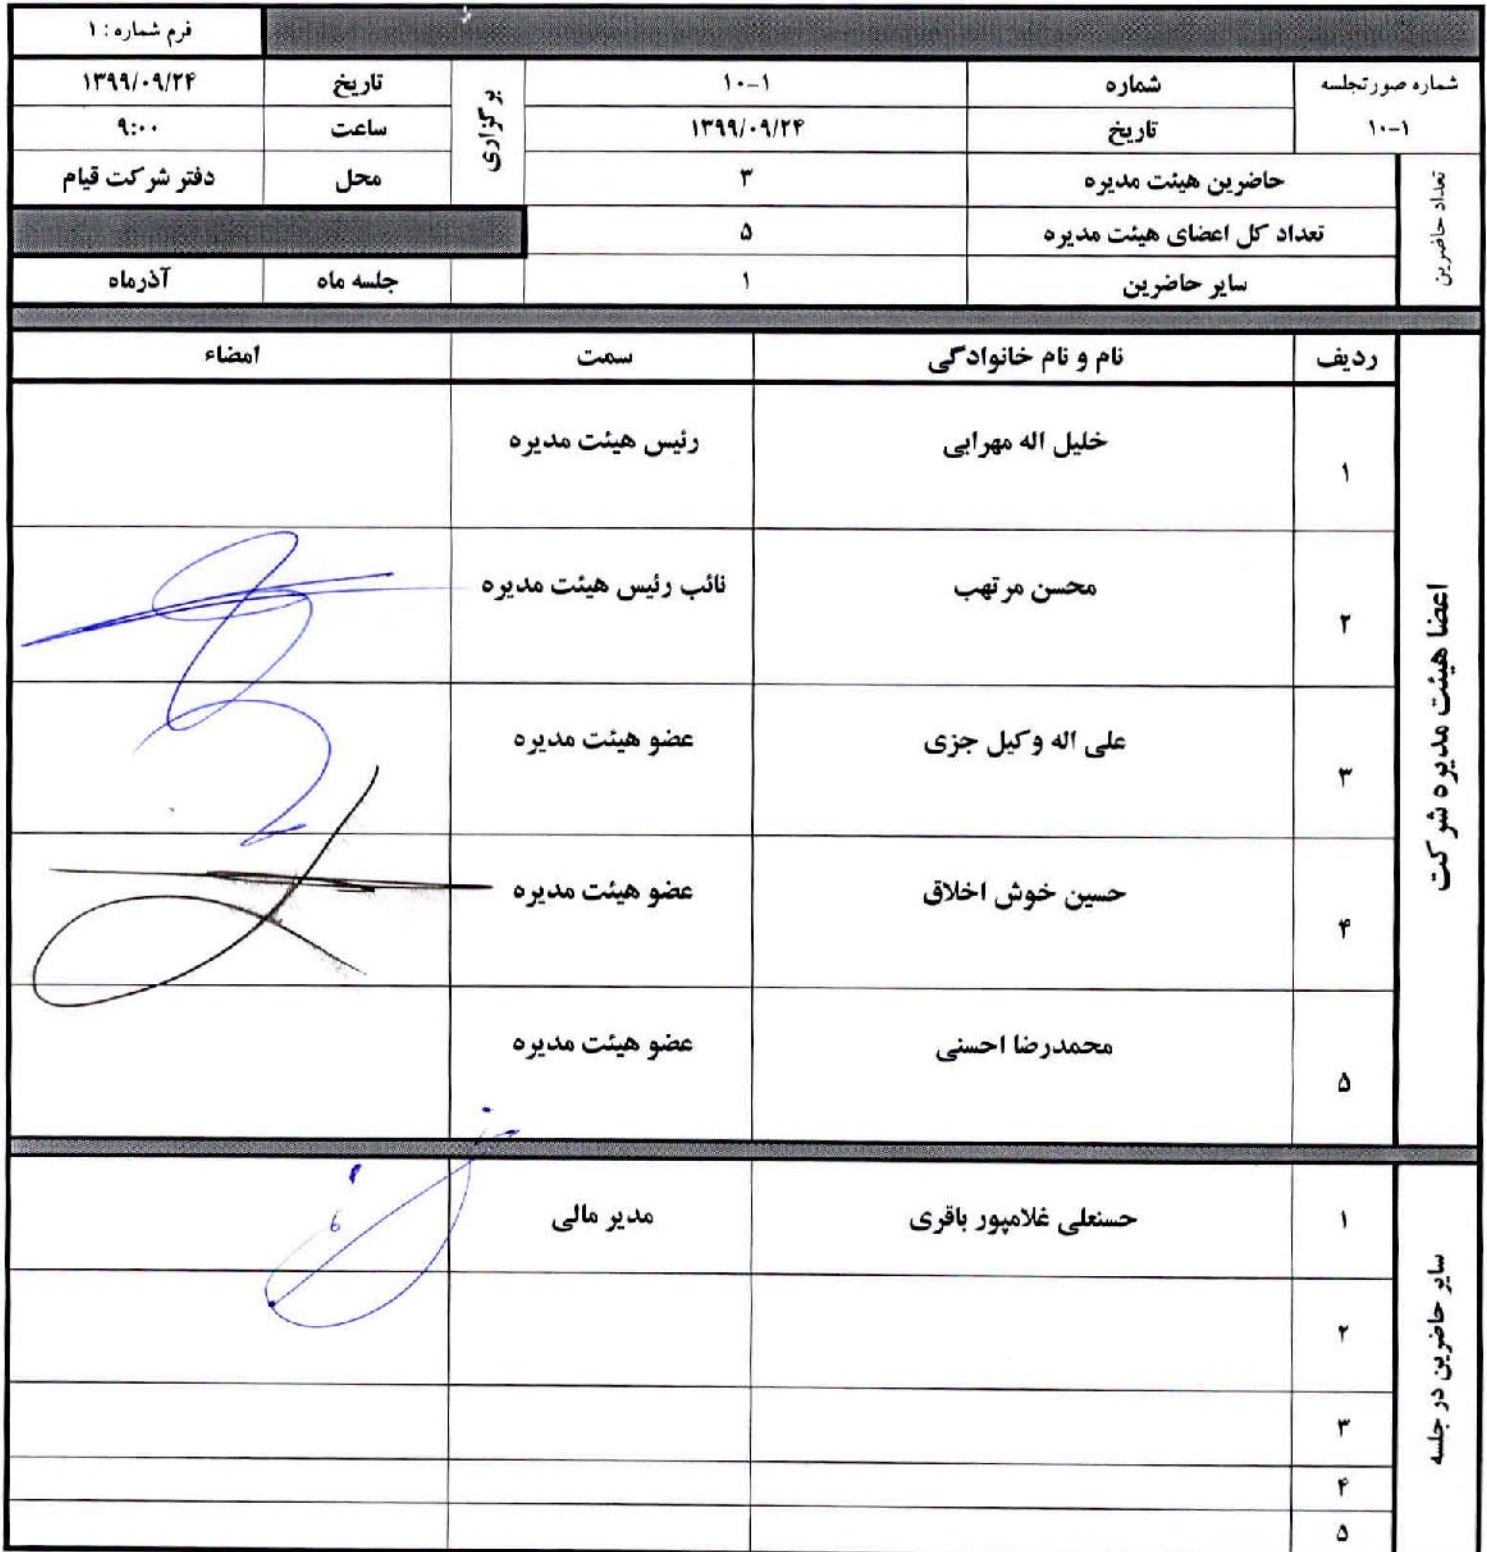 فرم شماره : ۱
شماره صورتجلسه
۱۰-۱
شماره ۱۰-۱
تاریخ ۱۳۹۹/۰۹/۲۴
برگزاری
تاریخ ۱۳۹۹/۰۹/۲۴
ساعت ۹:۰۰
محل دفتر شرکت قیام
تعداد حاضرین
حاضرین هیئت مدیره ۳
تعداد کل اعضای هیئت مدیره ۵
سایر حاضرین ۱ جلسه ماه آذرماه
اعضا هیئت مدیره شرکت
ردیف نام و نام خانوادگی سمت امضاء
۱ خلیل اله مهرابی رئیس هیئت مدیره
۲ محسن مرتهب نائب رئیس هیئت مدیره
۳ علی اله وکیل جزی عضو هیئت مدیره
۴ حسین خوش اخلاق عضو هیئت مدیره
۵ محمدرضا احسنی عضو هیئت مدیره
سایر حاضرین در جلسه
۱ حسنعلی غلامپور باقری مدیر مالی
۲
۳
۴
۵